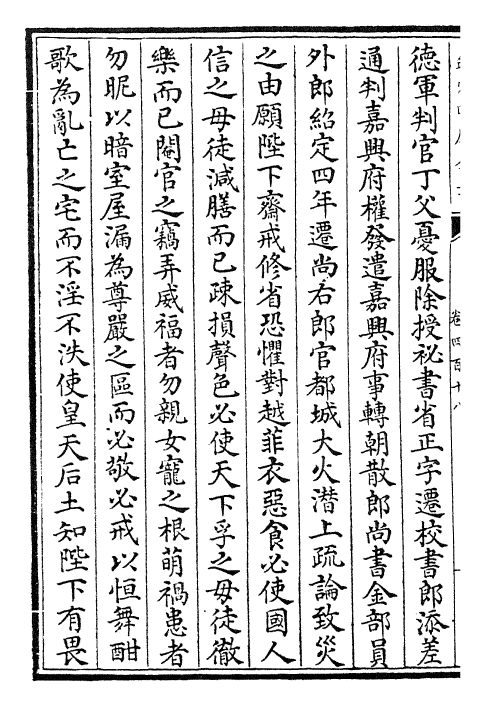 德軍判官丁父憂服除授祕書省正字遷校書郎添差
通判嘉興府權發遣嘉興府事轉朝散郎尚書金部員
外郎紹定四年遷尚右郎官都城大火潛上疏論致災
之由願陛下齋戒修省恐懼對越菲衣惡食必使國人
信之毋徒減膳而已疎損聲色必使天下孚之毋徒徹
樂而已閹官之竊弄威福者勿親女寵之根萌禍患者
勿昵以暗室屋漏為尊嚴之區而必敬必戒以恒舞酣
歌為亂亡之宅而不淫不泆使皇天后土知陛下有畏
卷四百十八